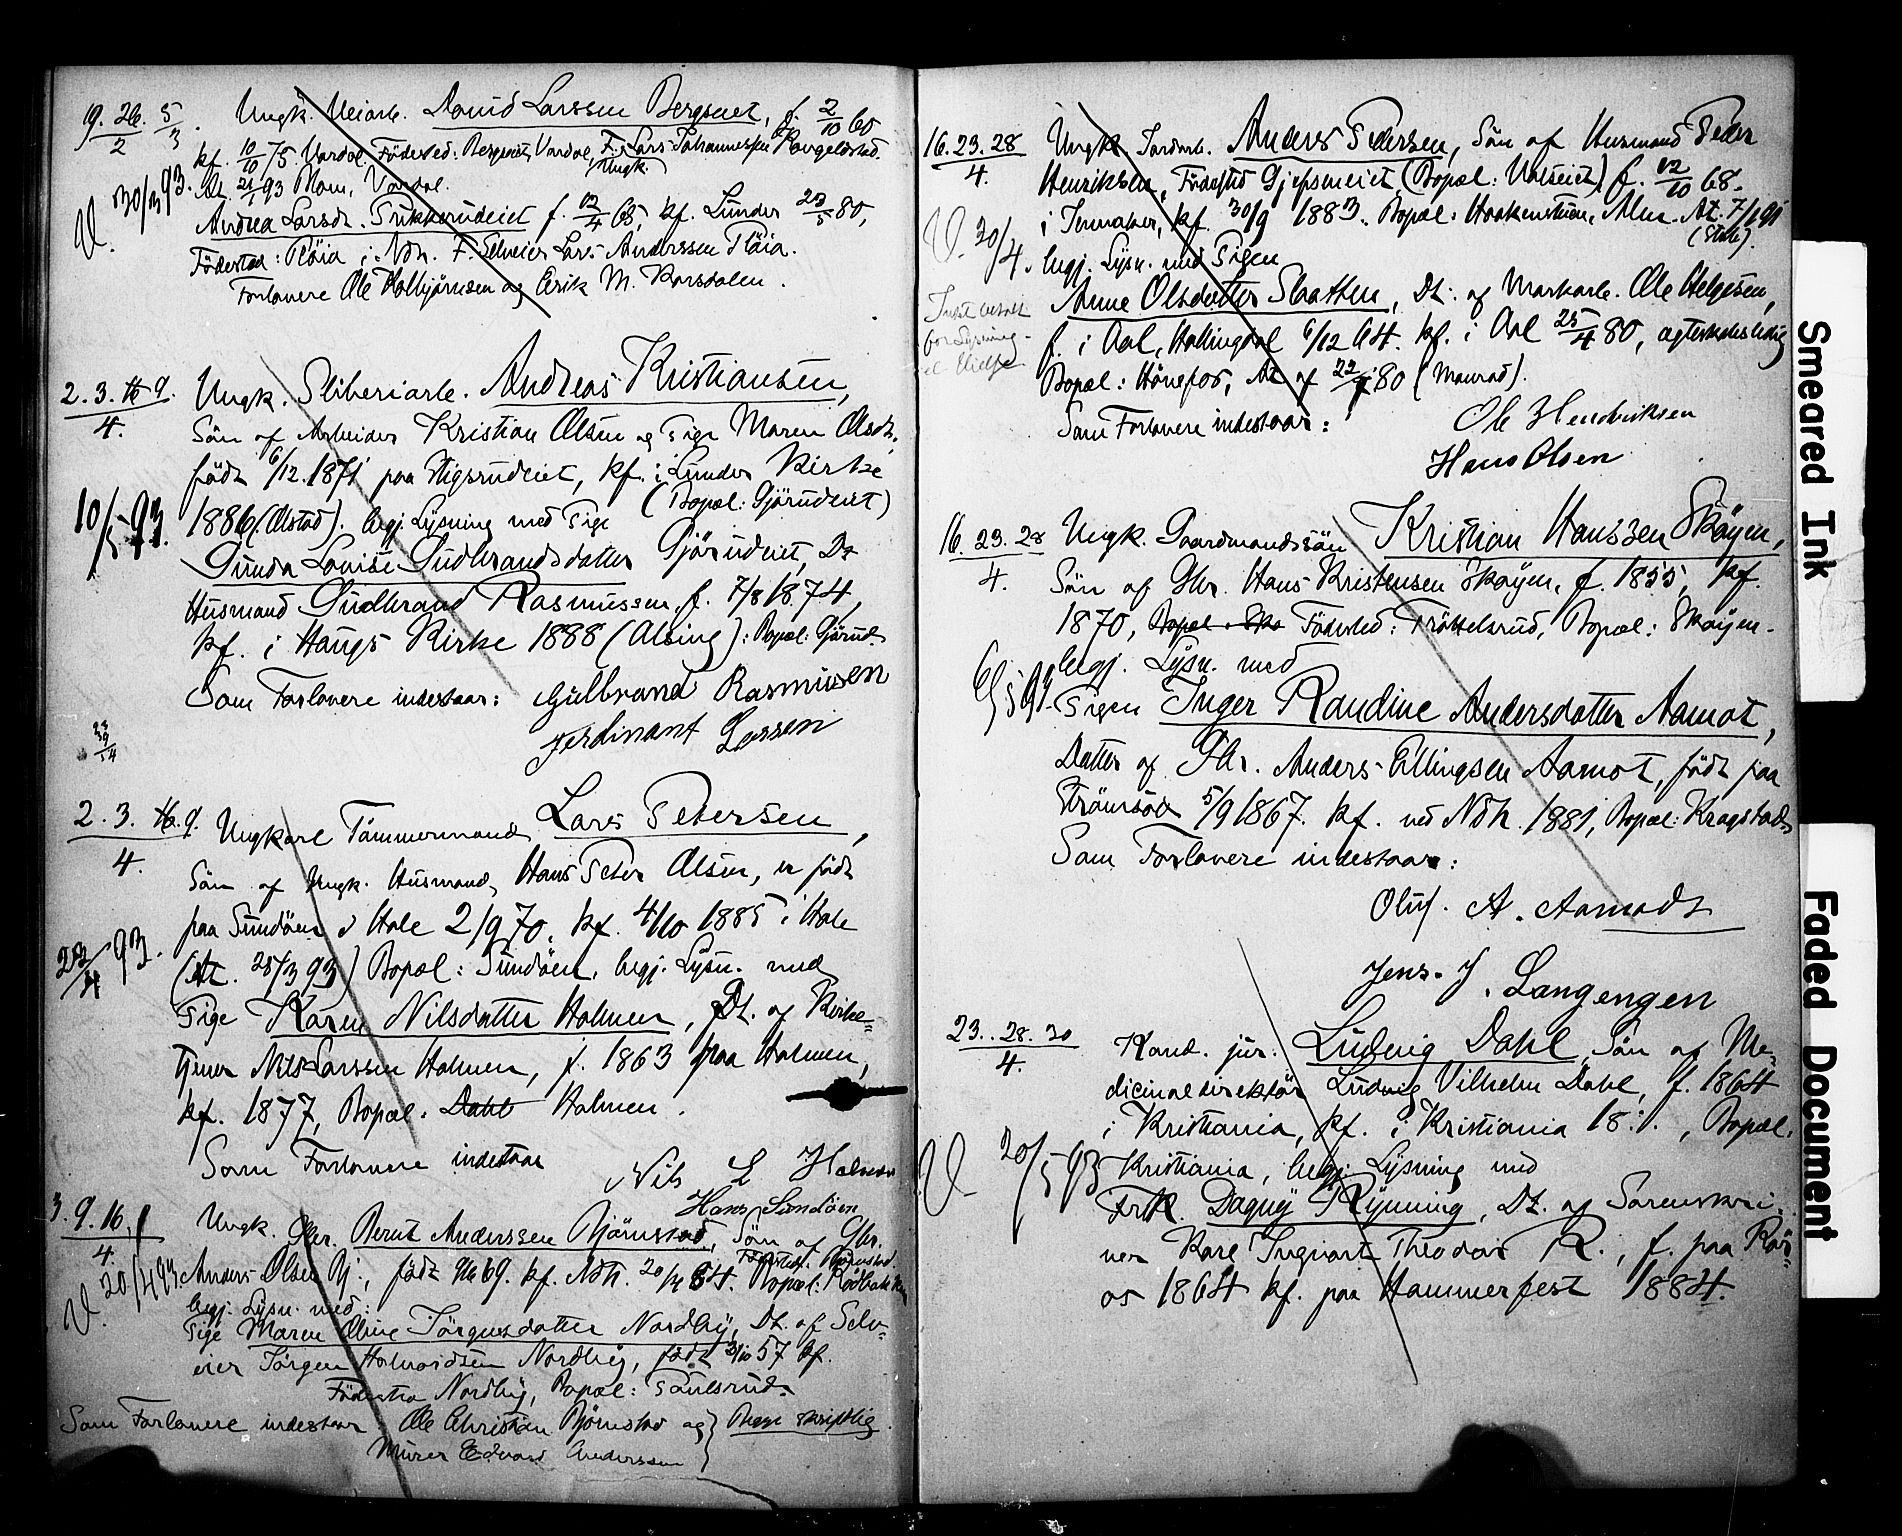 19. 26. 5/3
2
Ungk. Veiarb. David Larssen Bergseiet, f. 2/10 60
kf. 10/10 75 Vardal. Födested: Bergseiet, Vardal. F: Ungk. Lars Johannessen
At. 21/1 93 Mom, Vardal.
V. 30/3 93.
Andrea Larsdt. f. 12/4 65, kf. Lunder 23/5 80,
Födested: Flöia i Ndh. F. Selveier Lars Anderssen Flöia.
Forlovere Ole Kolbjörnsen og Erik M. Karsdalen.
2. 3. 16 9.
4.
Ungk. Sliberiarb. Andreas Kristiansen,
Sön af Arbeider Kristian Olsen og Pige Maren Olsdt.
födt 6/12 1871 paa Stigsrudeiet, kf. i Lunder Kirke
1886 (Olstad). begj. Lysning med Pige (Bopæl: Gjörudeiet)
10/5 93.
Gunda Louise Gudbrandsdatter Gjörudeiet, Dt
Husmand Gudbrand Rasmussen, f. 7/8 1874,
kf. i Haugs Kirke 1888 (Alsing): Bopæl: Gjörud.
Som Forlovere indestaar: Gulbrand Rasmusen
Ferdinant Larsen
2. 3. 16. 9.
4.
Ungkarl Tömmermand Lars Petersen,
Sön af Ungk. Husmand Hans Peter Olsen, er födt
paa Sundöen i Hole 2/9 70, kf. 4/10 1885 i Hole
23/4 93.
(At. 28/3 93) Bopæl: Sundöen, begj. Lysn. med
Pige Karen Nilsdatter Holmen, Dt. af Kirke=
tjener Nils Larssen Holmen, f. 1863 paa Holmen,
kf. 1877, Bopæl. Dahl Holmen.
Som Forlovere indestaar Nils L Holmen
Hans Sundöen
3. 9. 16.
4.
Ungk. Gbr. Bernt Anderssen Bjørnstad, Sön af Gbr.
Anders Olsen Bj., födt 69. kf. Ndh. 84. Bopæl:
V. 20/4 93
begj. Lysn. med:
Pige Maren Oline Jörgensdatter Nordby, Dt. af Selv=
eier Jörgen Nordby, födt 57 kf.
Födested Nordby, Bopæl: Paulsrud.
Som Forlovere indestaar Ole Christian Bjørnstad og } Begge skriftlig.
Murer Edvard Anderssen
16. 23. 28
4.
Ungk. Jordarb. Anders Pedersen, Sön af Husmand Peder
Henriksen, Födested Gjepsneeiet (Bopæl: ) f. 12/10 68.
i Jevnaker, kf. 30/9 1883. Bopæl: At. 7/1 91
(Stub).
V. 30/4.
begj. Lysn. med Pigen
Anne Olsdatter Slaatten, Dt. af Markarb. Ole Helgesen,
for Lysning
f. i Aal, Hallingdal 6/12 64. kf. i Aal 25/4 80, ægteskabsledig
Bopæl: Hönefos, At af 80
Som Forlovere indestaar: Ole Hendriksen
Hans Olsen
16. 23. 28
4.
Ungk. Gaardmandssön Kristian Hanssen Skøyen,
Sön af Gbr. Hans Kristensen Skøyen, f. 1855, kf.
1870, Bopæl Skø Födested: Tröttelsrud, Bopæl: Skøyen.
begj. Lysn. med
Pigen Inger Randine Andersdatter Aamot,
Datter af Gbr. Anders Ellingsen Aamot, födt paa
Strömsöd 5/9 1867. kf. ved Ndh. 1881, Bopæl: Kragstad.
Som Forlovere indestaar:
Oluf. A. Aamodt
Jens. J. Langengen
23. 28. 30
4.
Kand. jur. Ludvig Dahl, Sön af Me=
dicinaldirektör Ludvig Vilhelm Dahl, f. 1864
i Kristiania, kf. i Kristiania 18 , Bopæl.
V. 20/5 93
Kristiania, begj. Lysning med
Frk. Dagny Ryning, Dt. af Sorenskri=
ver Karl Ingvart Theodor R., f. paa Rör=
os 1864 kf. paa Hammerfest 1884.
Smeared Ink
Faded Document